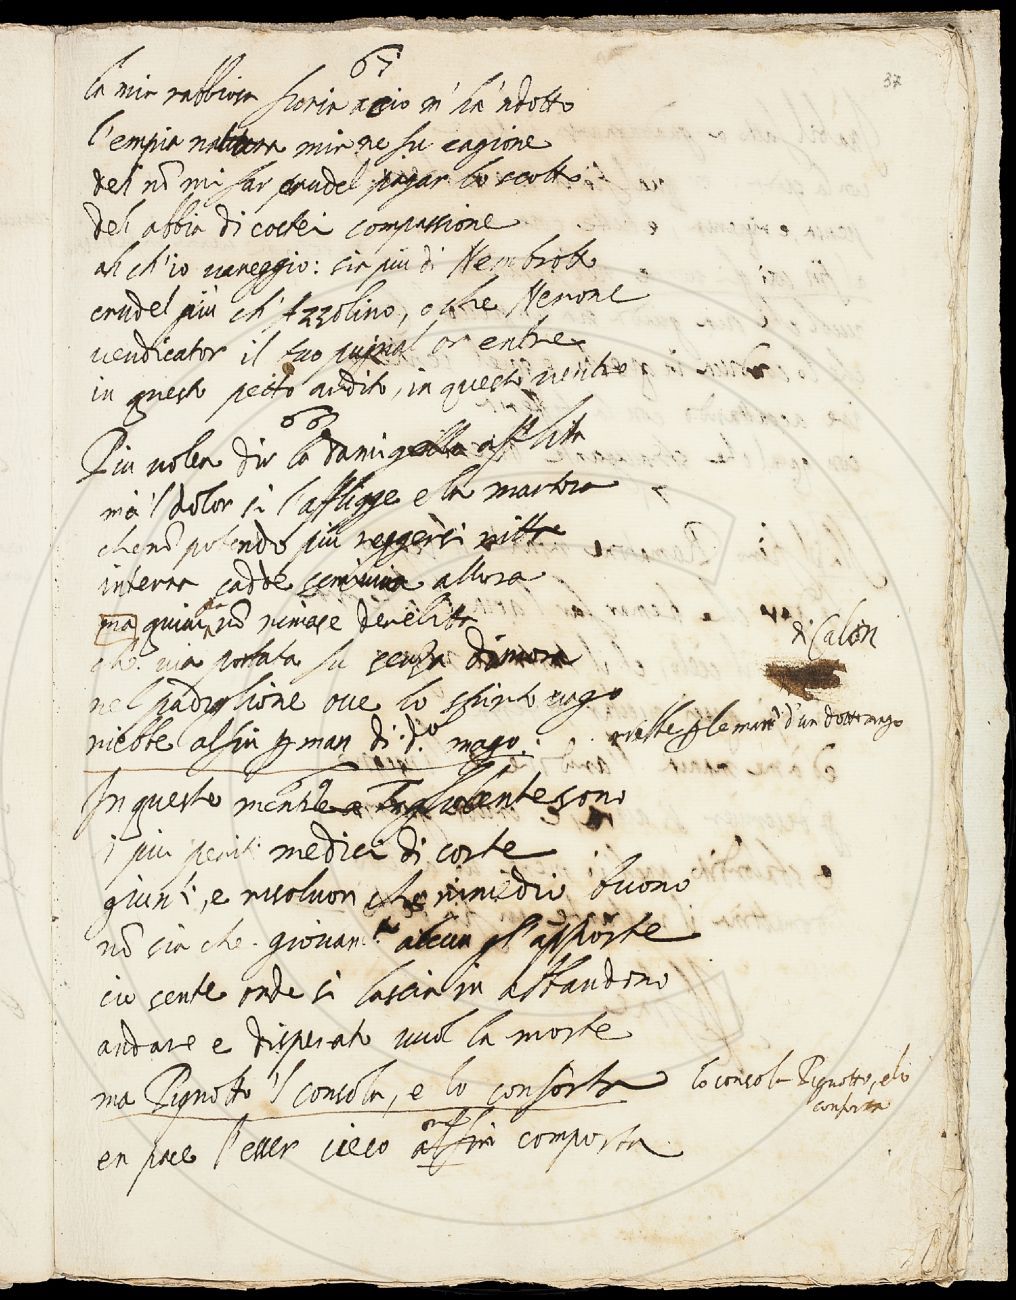 37
67
la mia rabbiosa furia a ciò m'ha 'ndotto
l'empia natura mia ne fu cagione
deh nō mi far crudel pagar lo scotto
deh abbia di costei compassione
ah ch'io uaneggio: sia più di Nembrotto
crudel più ch'Azzolino, e che Nerone
uendicator il tuo pugnal or entre
in questo petto ardito, in questo uentre
68
Più uolea dir la damigella afflitta
ma 'l dolor sì l'affligge e la martora
che nō potendo più reggersi ritta
in terra cadde semiuiua allora
ma quiui nō rimase derelitta
che uia portata fu senza dimora
nel padiglione oue lo spirto uago
di Calon
riebbe alfin p man di d.º mago.
riebbe p le man d'un dotto mago
69
In questo mentre a Ingolente sono
i più periti medici di corte
giunti, e risoluon che rimedio buono
nō sia che giouam.to alcun gl'apporte
ciò sente onde si lascia in abbandono
andare e disperato uuol la morte
ma Pignotto 'l consola, e lo conforta
lo consola Pignotto, e lo
conforta
en pace l'esser cieco alfin comporta